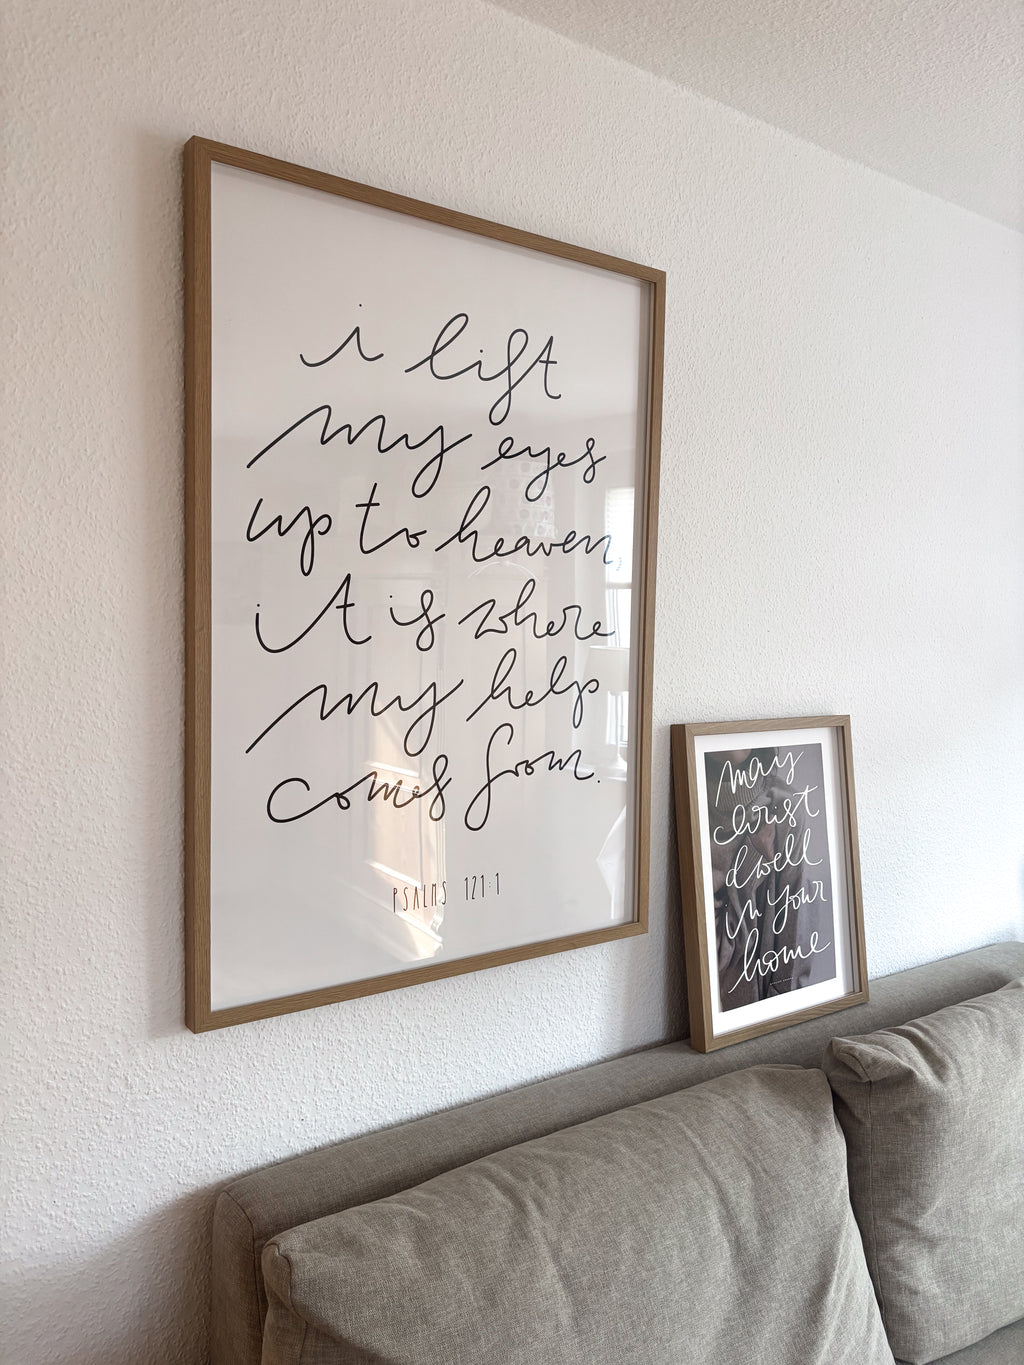 i lift
my eyes
up to heaven
it is where
my help
comes from.
PSALMS 121:1
may
christ
dwell
in your
home